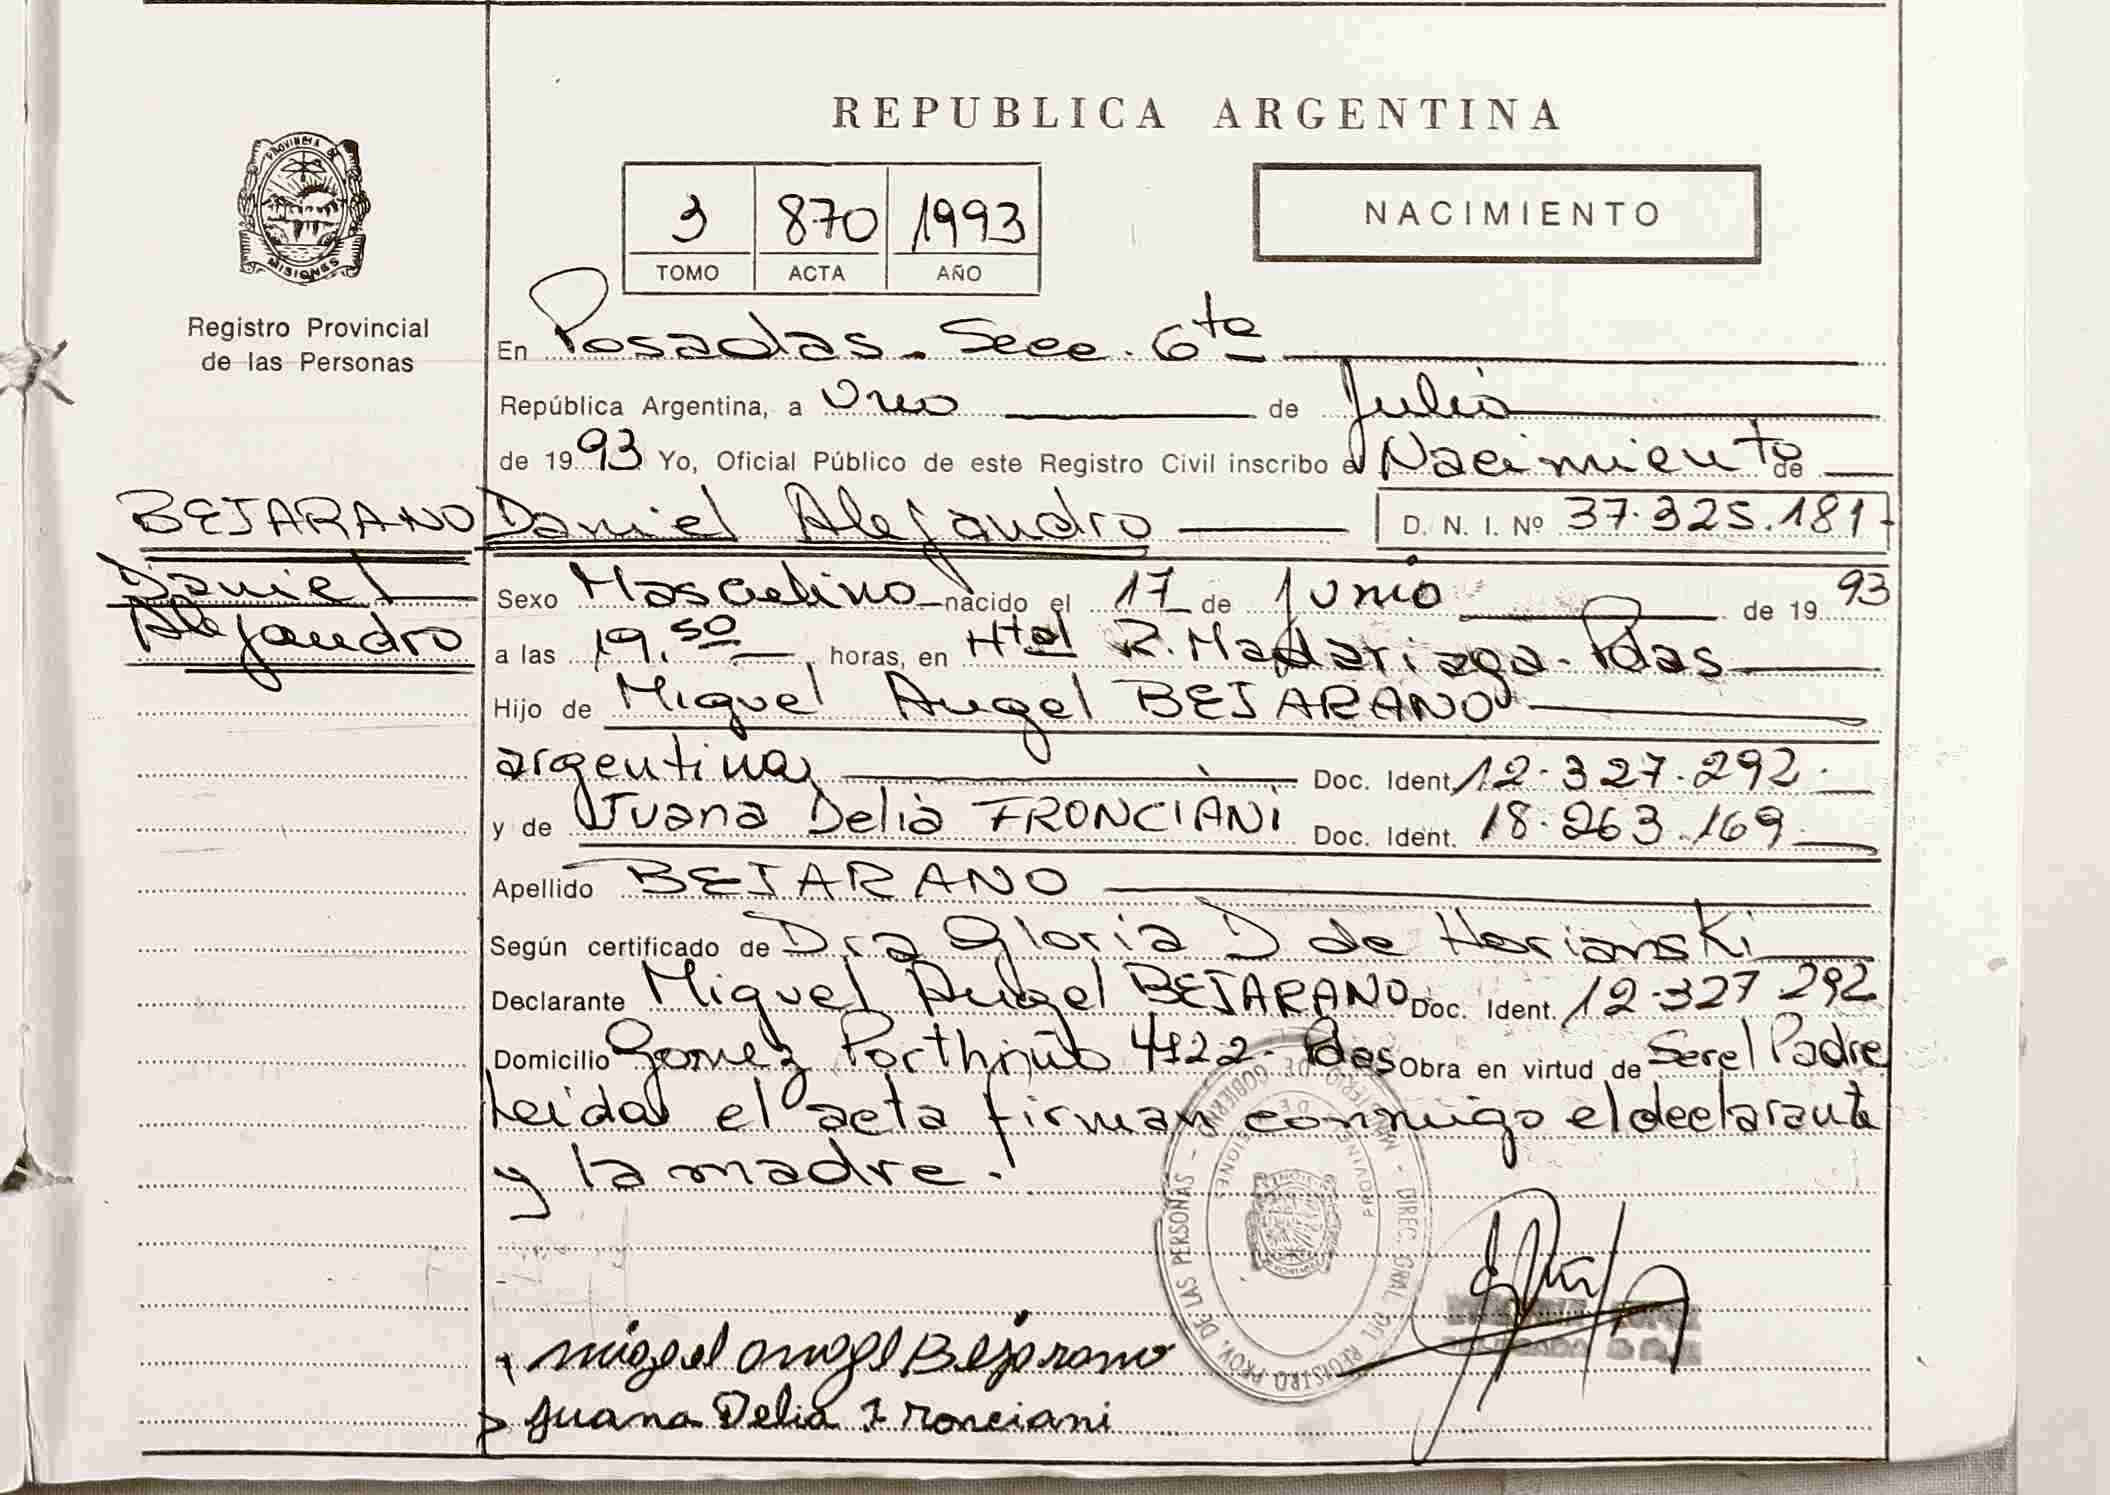 REPUBLICA ARGENTINA
PROVINCIA DE
MISIONES
Registro Provincial
de las Personas
3 870 1993
TOMO ACTA AÑO
NACIMIENTO
En Posadas. Secc. 6ta
República Argentina, a Uno de Julio
de 1993 Yo, Oficial Público de este Registro Civil inscribo el Nacimiento de
BEJARANO Daniel Alejandro D. N. I. Nº 37.325.181
Daniel
Alejandro
Sexo Masculino nacido el 17 de Junio de 1993
a las 19.50 horas, en Htal R. Madariaga - Pdas
Hijo de Miguel Angel BEJARANO
argentina Doc. Ident. 12.327.292
y de Juana Delia FRONCIANI Doc. Ident. 18.263.169
Apellido BEJARANO
Según certificado de Dra Gloria D de Horianski
Declarante Miguel Angel BEJARANO Doc. Ident. 12.327.292
Domicilio Gomez Porthiño 4122 - Pdas Obra en virtud de Ser el Padre
Leida el acta firman conmigo el declarante
y la madre.
MINISTERIO DE GOBIERNO - DIREC. GRAL. DEL REGISTRO PROV. DE LAS PERSONAS -
PROVINCIA DE MISIONES
miguel angel Bejarano
Juana Delia Fronciani